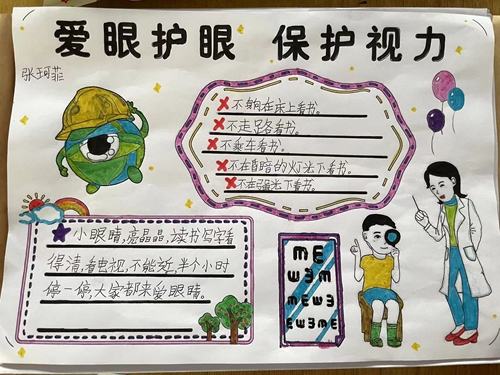 爱眼护眼 保护视力
张珂菲
×不躺在床上看书。
×不走路看书。
×不乘车看书。
×不在昏暗的灯光下看书。
×不在强光下看书。
小眼睛,亮晶晶,读书写字看
得清,看电视,不能近,半个小时
停一停,大家都来爱眼睛。
mE
wƎm
mEwƎ
EwƎmE